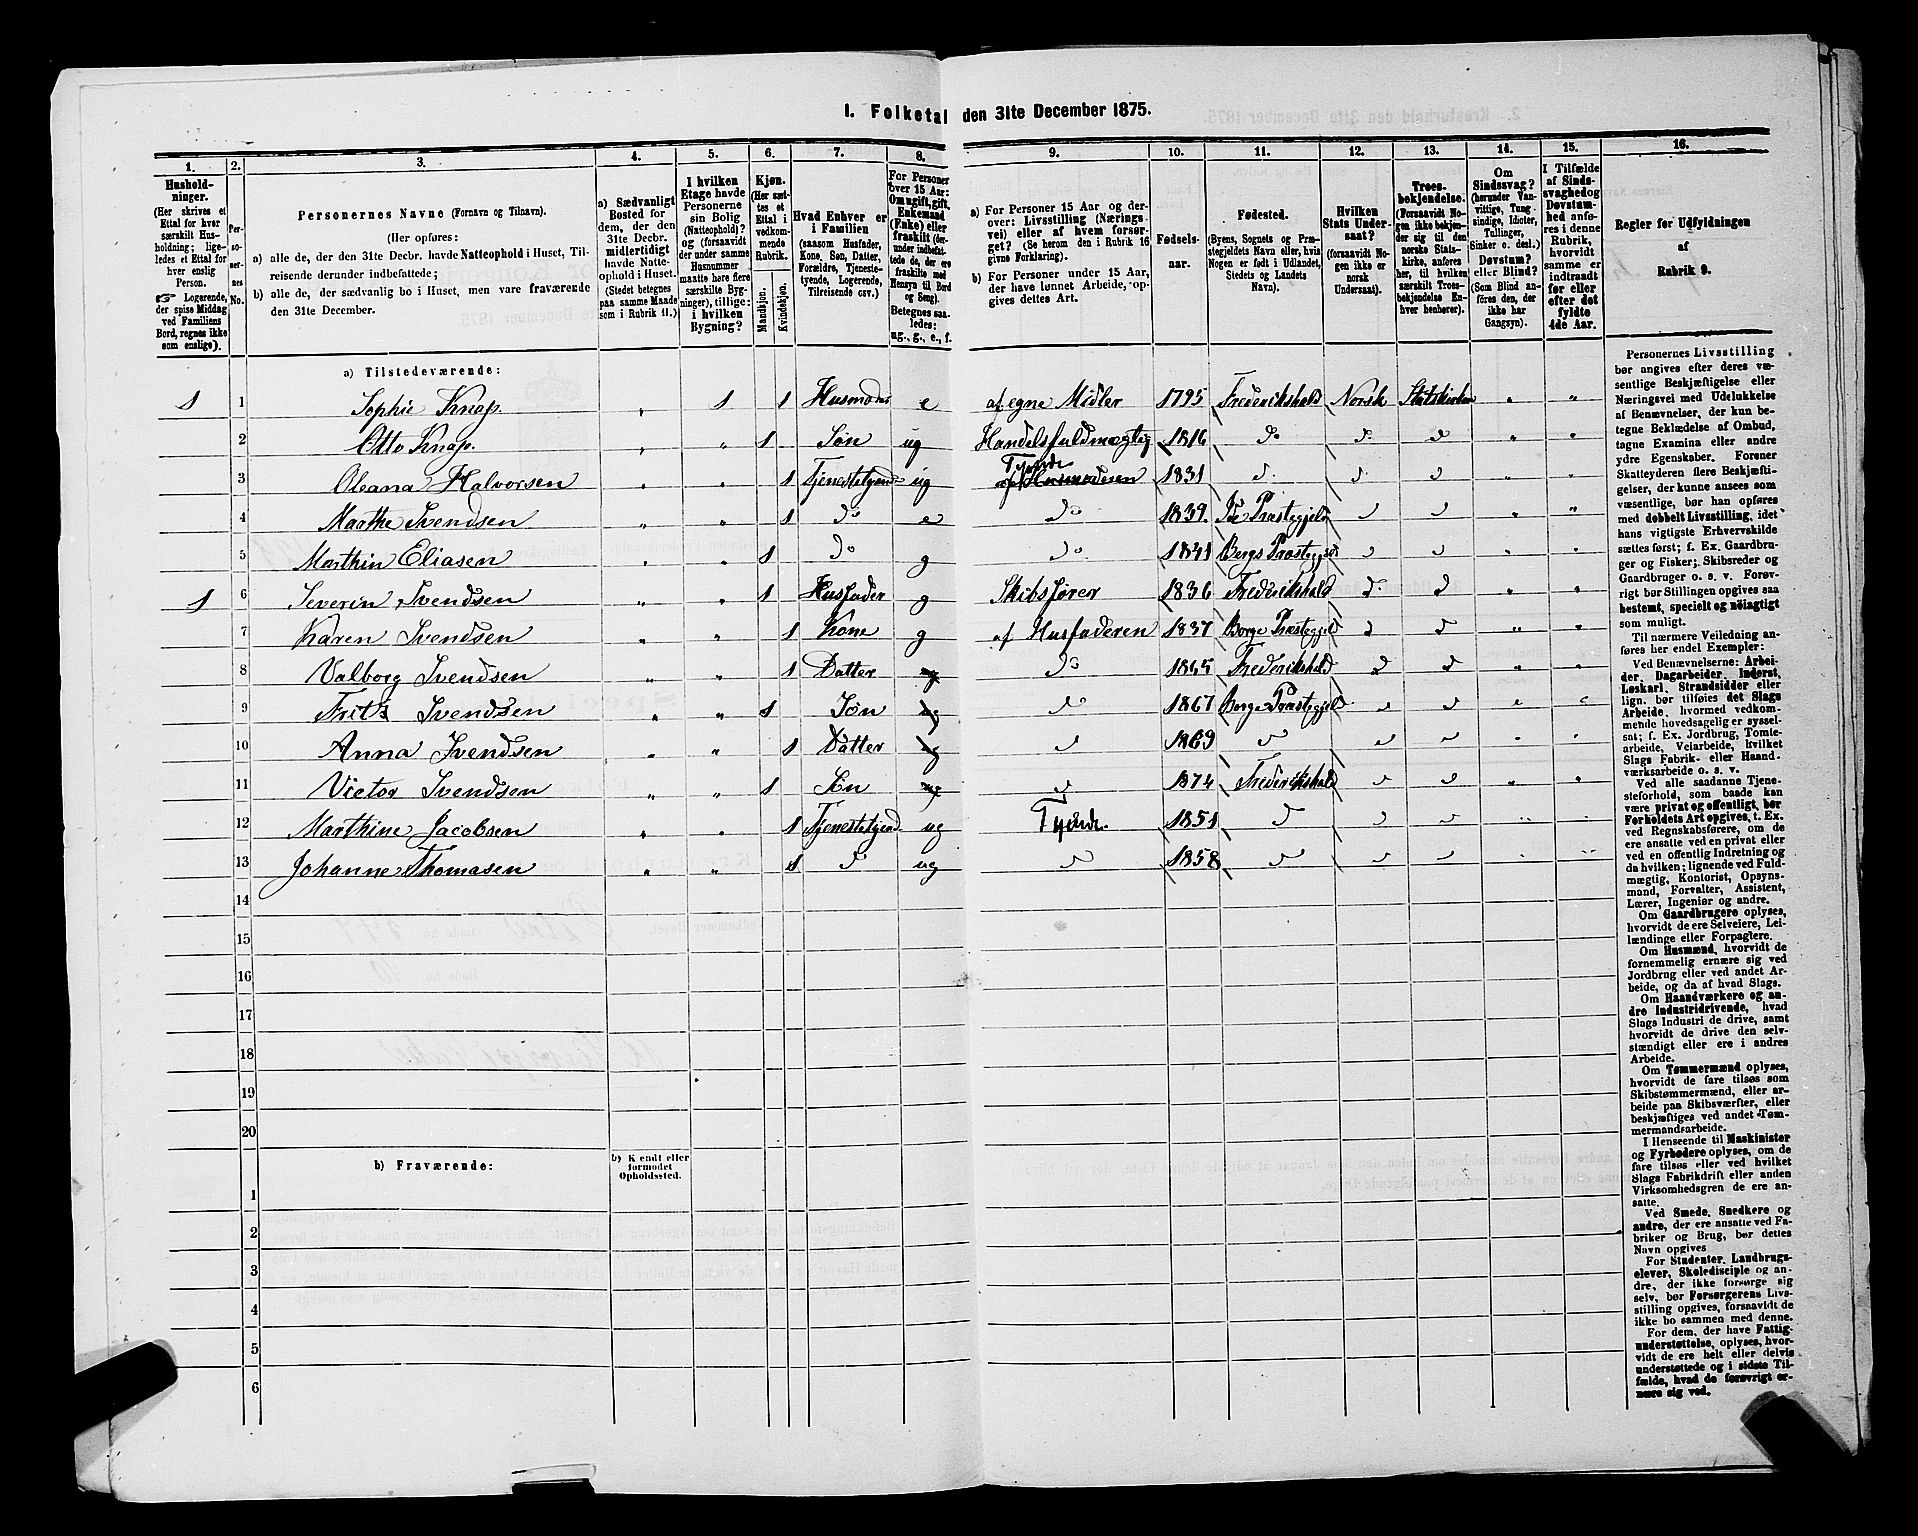 1. Folketal den 31te December 1875.
1. 2. 3. 4. 5. 6. 7. 8. 9. 10. 11. 12. 13. 14. 15. 16.
Hushold-
ninger.
(Her skrives et
Ettal for hver
særskilt Hus-
holdning; lige-
ledes et Ettal for
hver enslig
Person.
☞ Logerende,
der spise Middag
ved Familiens
Bord, regnes ikke
som enslige).
Per-
so-
ner-
nes
No.
Personernes Navne (Fornavn og Tilnavn).
(Her opføres:
a) alle de, der den 31te Decbr. havde Natteophold i Huset, Til-
reisende derunder indbefattede;
b) alle de, der sædvanlig bo i Huset, men vare fraværende
den 31te December.
a) Sædvanligt
Bosted for
dem, der den
31te Decbr.
midlertidigt
havde Natte-
ophold i Huset.
(Stedet betegnes
paa samme Maade
som i Rubrik 11.)
I hvilken
Etage havde
Personerne
sin Bolig
(Natteophold)?
og (forsaavidt
der under samme
Husnummer
maatte høre flere
særskilte Byg-
ninger), tillige:
i hvilken
Bygning?
Kjøn.
(Her sæt-
tes et
Ettal i
vedkom-
mende
Rubrik.
Mandkjøn.
Kvindekjøn.
Hvad Enhver er
i Familien
(saasom Husfader,
Kone, Søn, Datter,
Forældre, Tjeneste-
tyende, Logerende,
Tilreisende csv.)
For Personer
over 15 Aar:
Om ugift, gift,
Enkemand
(Enke) eller
fraskilt (der-
under indbefat-
tede de, der ere
fraskilte med
Hensyn til Bord
og Seng).
Betegnes saa-
ledes:
ug., g., e., f.
a) For Personer 15 Aar og der-
over: Livsstilling (Nærings-
vei) eller af hvem forsør-
get? (Se herom den i Rubrik 16
givne Forklaring).
b) For Personer under 15 Aar,
der have lønnet Arbeide, op-
gives dettes Art.
Fødsels-
aar.
Fødested.
(Byens, Sognets og Præ-
stegjeldets Navn eller, hvis
Nogen er født i Udlandet,
Stedets og Landets
Navn).
Hvilken
Stats Under-
saat?
(forsaavidt No-
gen ikke er
norsk
Undersaat).
Troes-
bekjendelse.
(Forsaavidt No-
gen ikke bekjen-
der sig til den
norske Stats-
kirke, anføres
her, til hvilken
særskilt Troes-
bekjendelse En-
hver henhører).
Om
Sindssvag?
(herunder Van-
vittige, Tung-
sindige, Idioter,
Tullinger,
Sinker o. desl.).
Døvstum?
eller Blind?
(Som Blind an-
føres den, der
ikke har
Gangsyn).
I Tilfælde
af Sinds-
svaghed og
Døvstum-
hed anfø-
res i denne
Rubrik,
hvorvidt
samme er
indtraadt
før eller
efter det
fyldte
4de Aar.
Regler for Udfyldningen
af
Rubrik 9.
a) Tilstedeværende:
1 1 Sophie Knap. „ 1 1 Husmoder e af egne Midler 1795 Frederikshald Norsk Statskirken „ „
2 Otto Knap. „ „ 1 Søn ug Handelsfuldmægtig 1816 do d. d „ „
3 Oleana Halvorsen „ „ 1 Tjenestetyende ug Tyende af Husmoderen 1831 d. d. d „ „
4 Marthe Svendsen „ „ 1 do e do 1839. Ide Præstegjeld d d „ „
5 Marthin Eliasen „ „ 1 do g do 1841 Bergs Præstegjeld d d „ „
1 6 Severin Svendsen „ „ 1 Husfader g Skibsfører 1836 Frederikshald d. d „ „
7 Karen Svendsen „ „ 1 Kone g af Husfaderen 1837 Borge Præstegjeld d d „ „
8 Valborg Svendsen „ „ 1 Datter ug do 1865 Frederikshald d d „ „
9 Fritz Svendsen „ „ 1 Søn ug do 1867 Borge Præstegjeld d d „ „
10 Anna Svendsen „ „ 1 Datter ug d 1869 d d d „ „
11 Victor Svendsen „ „ 1 Søn ug d 1874 Frederikshald d d „ „
12 Marthine Jacobsen „ „ 1 Tjenestetyend ug Tyende. 1851 d d d „ „
13 Johanne Thomasen „ „ 1 do ug d 1858 d d d „ „
14
15
16
17
18
19
20
b) Fraværende:
b) Kjendt eller
formodet
Opholdssted.
1
2
3
4
5
6
Personernes Livsstilling
bør angives efter deres væ-
sentlige Beskjæftigelse eller
Næringsvei med Udelukkelse
af Benævnelser, der kun be-
tegne Beklædelse af Ombud,
tagne Examina eller andre
ydre Egenskaber. Forener
Skatteyderen flere Beskjæfti-
gelser, der kunne ansees som
væsentlige, bør han opføres
med dobbelt Livsstilling, idet
hans vigtigste Erhvervskilde
sættes først; f. Ex. Gaardbru-
ger og Fisker; Skibsreder og
Gaardbruger o. s. v. Forøv-
rigt bør Stillingen opgives saa
bestemt, specielt og nøiagtigt
som muligt.
Til nærmere Veiledning an-
føres her endel Exempler:
Ved Benævnelserne: Arbei-
der, Dagarbeider, Inderst,
Løskarl, Strandsidder eller
lign. bør tilføies det Slags
Arbeide, hvormed vedkom-
mende hovedsagelig er syssel-
sat; f. Ex. Jordbrug, Tomte-
arbeide, Veiarbeide, hvilket
Slags Fabrik- eller Haand-
værksarbeide o. s. v.
Ved alle saadanne Tjene-
steforhold, som baade kan
være privat og offentligt, bør
Forholdets Art opgives, t. Ex.
ved Regnskabsførere, om de
ere ansatte ved en privat eller
ved en offentlig Indretning og
da hvilken; lignende ved Fuld-
mægtig, Kontorist, Opsyns-
mand, Forvalter, Assistent,
Lærer, Ingeniør og andre.
Om Gaardbrugere oplyses,
hvorvidt de ere Selveiere, Lei-
lændinge eller Forpagtere.
Om Husmænd, hvorvidt de
fornemmelig ernære sig ved
Jordbrug eller ved andet Ar-
beide, og da af hvad Slags.
Om Haandværkere og an-
dre Industridrivende, hvad
Slags Industri de drive, samt
hvorvidt de drive den selv-
stændigt eller ere i andres
Arbeide.
Om Tømmermænd oplyses,
hvorvidt de fare tilsøs som
Skibstømmermænd, eller ar-
beide paa Skibsværfter, eller
beskjæftiges ved andet Tøm-
mermandsarbeide.
I Henseende til Maskinister
og Fyrbødere oplyses, om de
fare tilsøs eller ved hvilket
Slags Fabrikdrift eller anden
Virksomhedsgren de ere an-
satte.
Ved Smede, Snedkere og
andre, der ere ansatte ved Fa-
briker og Brug, bør dettes
Navn opgives.
For Studenter, Landbrugs-
elever, Skoledisciple og an-
dre, der ikke forsørge sig
selv, bør Forsørgerens Livs-
stilling opgives, forsaavidt de
ikke bo sammen med denne.
For dem, der have Fattig-
understøttelse, oplyses, hvor-
vidt de ere helt eller delvis
understøttede og i sidste Til-
fælde, hvad de forøvrigt er-
nære sig ved.